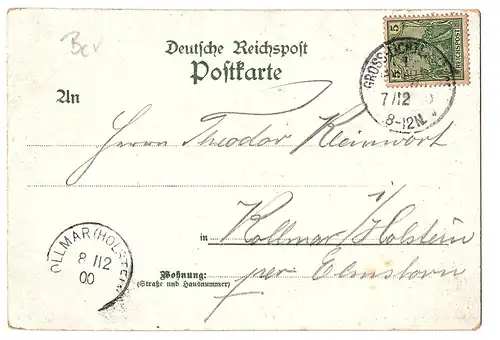 Bev
Deutsche Reichspost
Postkarte
5 REICHSPOST 5
GROSS
7/12
8-12N.
An
Herrn Theodor Kleinwort
in Kollmar i/Holstein
OLLMAR (HOLSTEIN)
8 /12
00
Wohnung:
(Straße und Hausnummer)
per Elmshorn